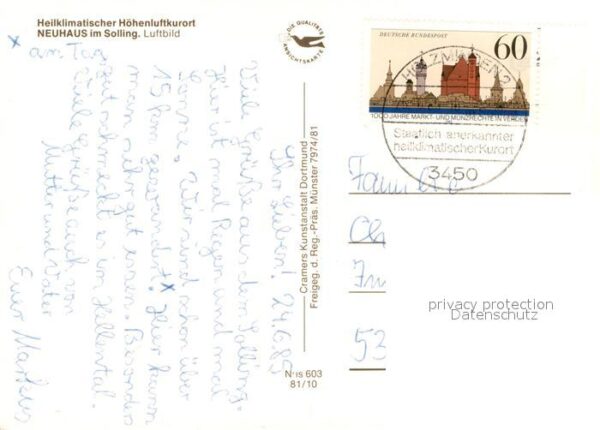 Heilklimatischer Höhenluftkurort
NEUHAUS im Solling. Luftbild
DIE QUALITÄTS
ANSICHTSKARTE
DEUTSCHE BUNDESPOST
60
1000 JAHRE MARKT- UND MÜNZRECHTE IN VERDEN
HOLZMINDEN 2
Staatlich anerkannter
heilklimatischer Kurort
3450
Ihr Lieben! 24.6.85
Viele Grüße aus dem Solling.
Hier ist mal Regen und mal
Sonne. Wir sind schon über
15 km gewandert x Hier kann
man sehr gut essen. Besonders
gut schmeckt es im Hellental.
Viele Grüße auch von
Mutter und Vater
Euer Markus
x am Tag
Cramers Kunstanstalt Dortmund
Freigeg. d. Reg.-Präs. Münster 7974/81
Nr IS 603
81/10
Familie
Ch
Im
53
privacy protection
Datenschutz